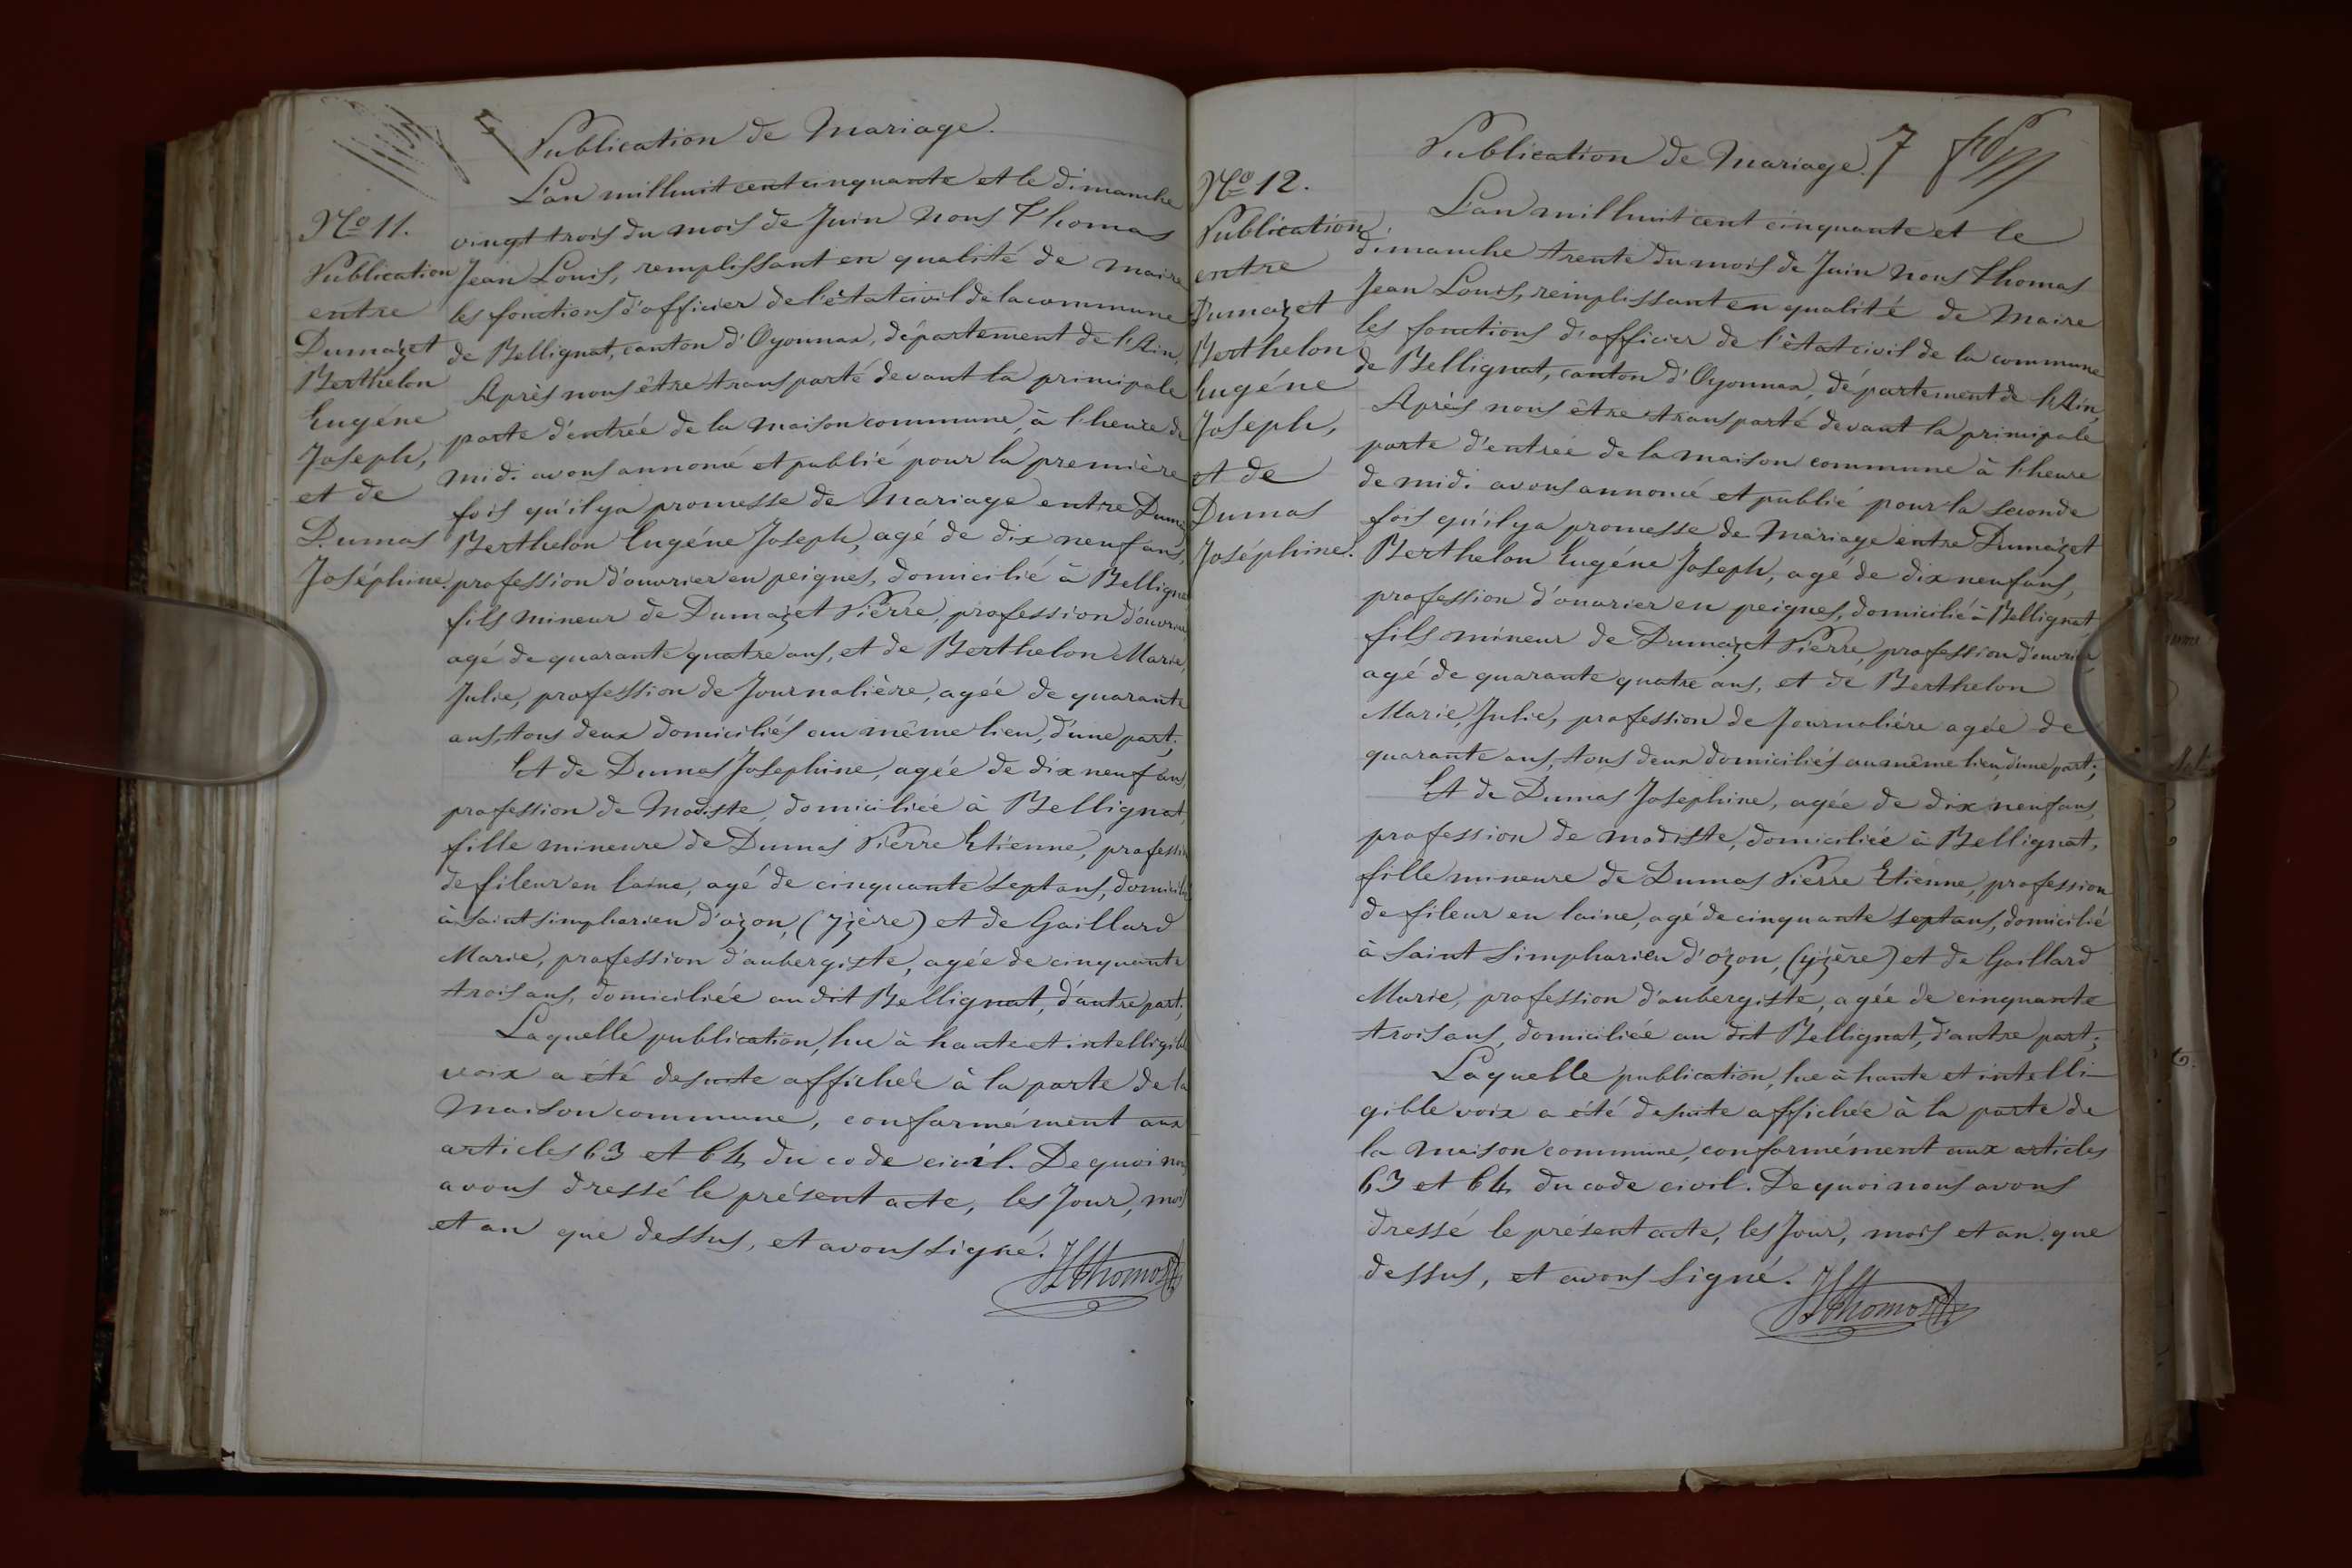 Publication de Mariage.
N° 11.
Publication
entre
Dumazet
Berthelon
Eugéne
Joseph,
et de
Dumas
Joséphine.
L'an mil huit cent cinquante et le dimanche
vingt trois du mois de Juin Nous Thomas
Jean Louis, remplissant en qualité de maire
les fonctions d'officier de l'état civil de la commune
de Bellignat, canton d'Oyonnax, département de l'Ain,
Après nous être transporté devant la principale
porte d'entrée de la maison commune, à l'heure de
midi avons annoncé et publié pour la première
fois qu'il y a promesse de Mariage entre Dumaz
Berthelon Eugéne Joseph, agé de dix neuf ans,
profession d'ouvrier en peignes, domicilié à Bellignat
fils mineur de Dumazet Pierre, profession d'ouvrier,
agé de quarante quatre ans, et de Berthelon Marie,
Julie, profession de Journalière, agée de quarante
ans, tous deux domiciliés au même lieu, d'une part;
Et de Dumas Josephine, agée de dix neuf ans,
profession de Modiste, domiciliée à Bellignat,
fille mineure de Dumas Pierre Etienne, profession
de fileur en laine, agé de cinquante sept ans, domicilié
à Saint simphorien d'ozon, (yzère) et de Gaillard
Marie, profession d'aubergiste, agée de cinquante
trois ans, domiciliée au dit Bellignat, d'autre part;
Laquelle publication, lue à haute et intelligible
voix a été desuite affichée à la porte de la
Maison commune, conformément aux
articles 63 et 64 du code civil. De quoi nous
avons dressé le présent acte, les Jour, mois
et an que dessus, et avons signé.
JL Thomas
Publication de Mariage. 7
N° 12.
Publication
entre
Dumazet
Berthelon
Eugéne
Joseph,
et de
Dumas
Joséphine.
L'an mil huit cent cinquante et le
dimanche trente du mois de Juin Nous Thomas
Jean Louis, remplissant en qualité de Maire
les fonctions d'officier de l'état civil de la commune
de Bellignat, canton d'Oyonnax, département de l'Ain,
Après nous être transporté devant la principale
porte d'entrée de la maison commune à l'heure
de midi avons annoncé et publié pour la seconde
fois qu'il y a promesse de Mariage entre Dumazet
Berthelon Eugéne Joseph, agé de dix neuf ans,
profession d'ouvrier en peignes, domicilié à Bellignat,
fils mineur de Dumazet Pierre, profession d'ouvrier,
agé de quarante quatre ans, et de Berthelon
Marie, Julie, profession de Journalière agée de
quarante ans, tous deux domiciliés au même lieu, d'une part;
Et de Dumas Josephine, agée de dix neuf ans,
profession de modiste, domiciliée à Bellignat,
fille mineure de Dumas Pierre Etienne, profession
de fileur en laine, agé de cinquante sept ans, domicilié
à Saint Simphorien d'ozon, (yzère) et de Gaillard
Marie, profession d'aubergiste, agée de cinquante
trois ans, domiciliée au dit Bellignat, d'autre part;
Laquelle publication, lue à haute et intelli-
gible voix a été desuite affichée à la porte de
la maison commune, conformément aux articles
63 et 64 du code civil. De quoi nous avons
dressé le présent acte, les Jour, mois et an que
dessus, et avons signé.
JL Thomas